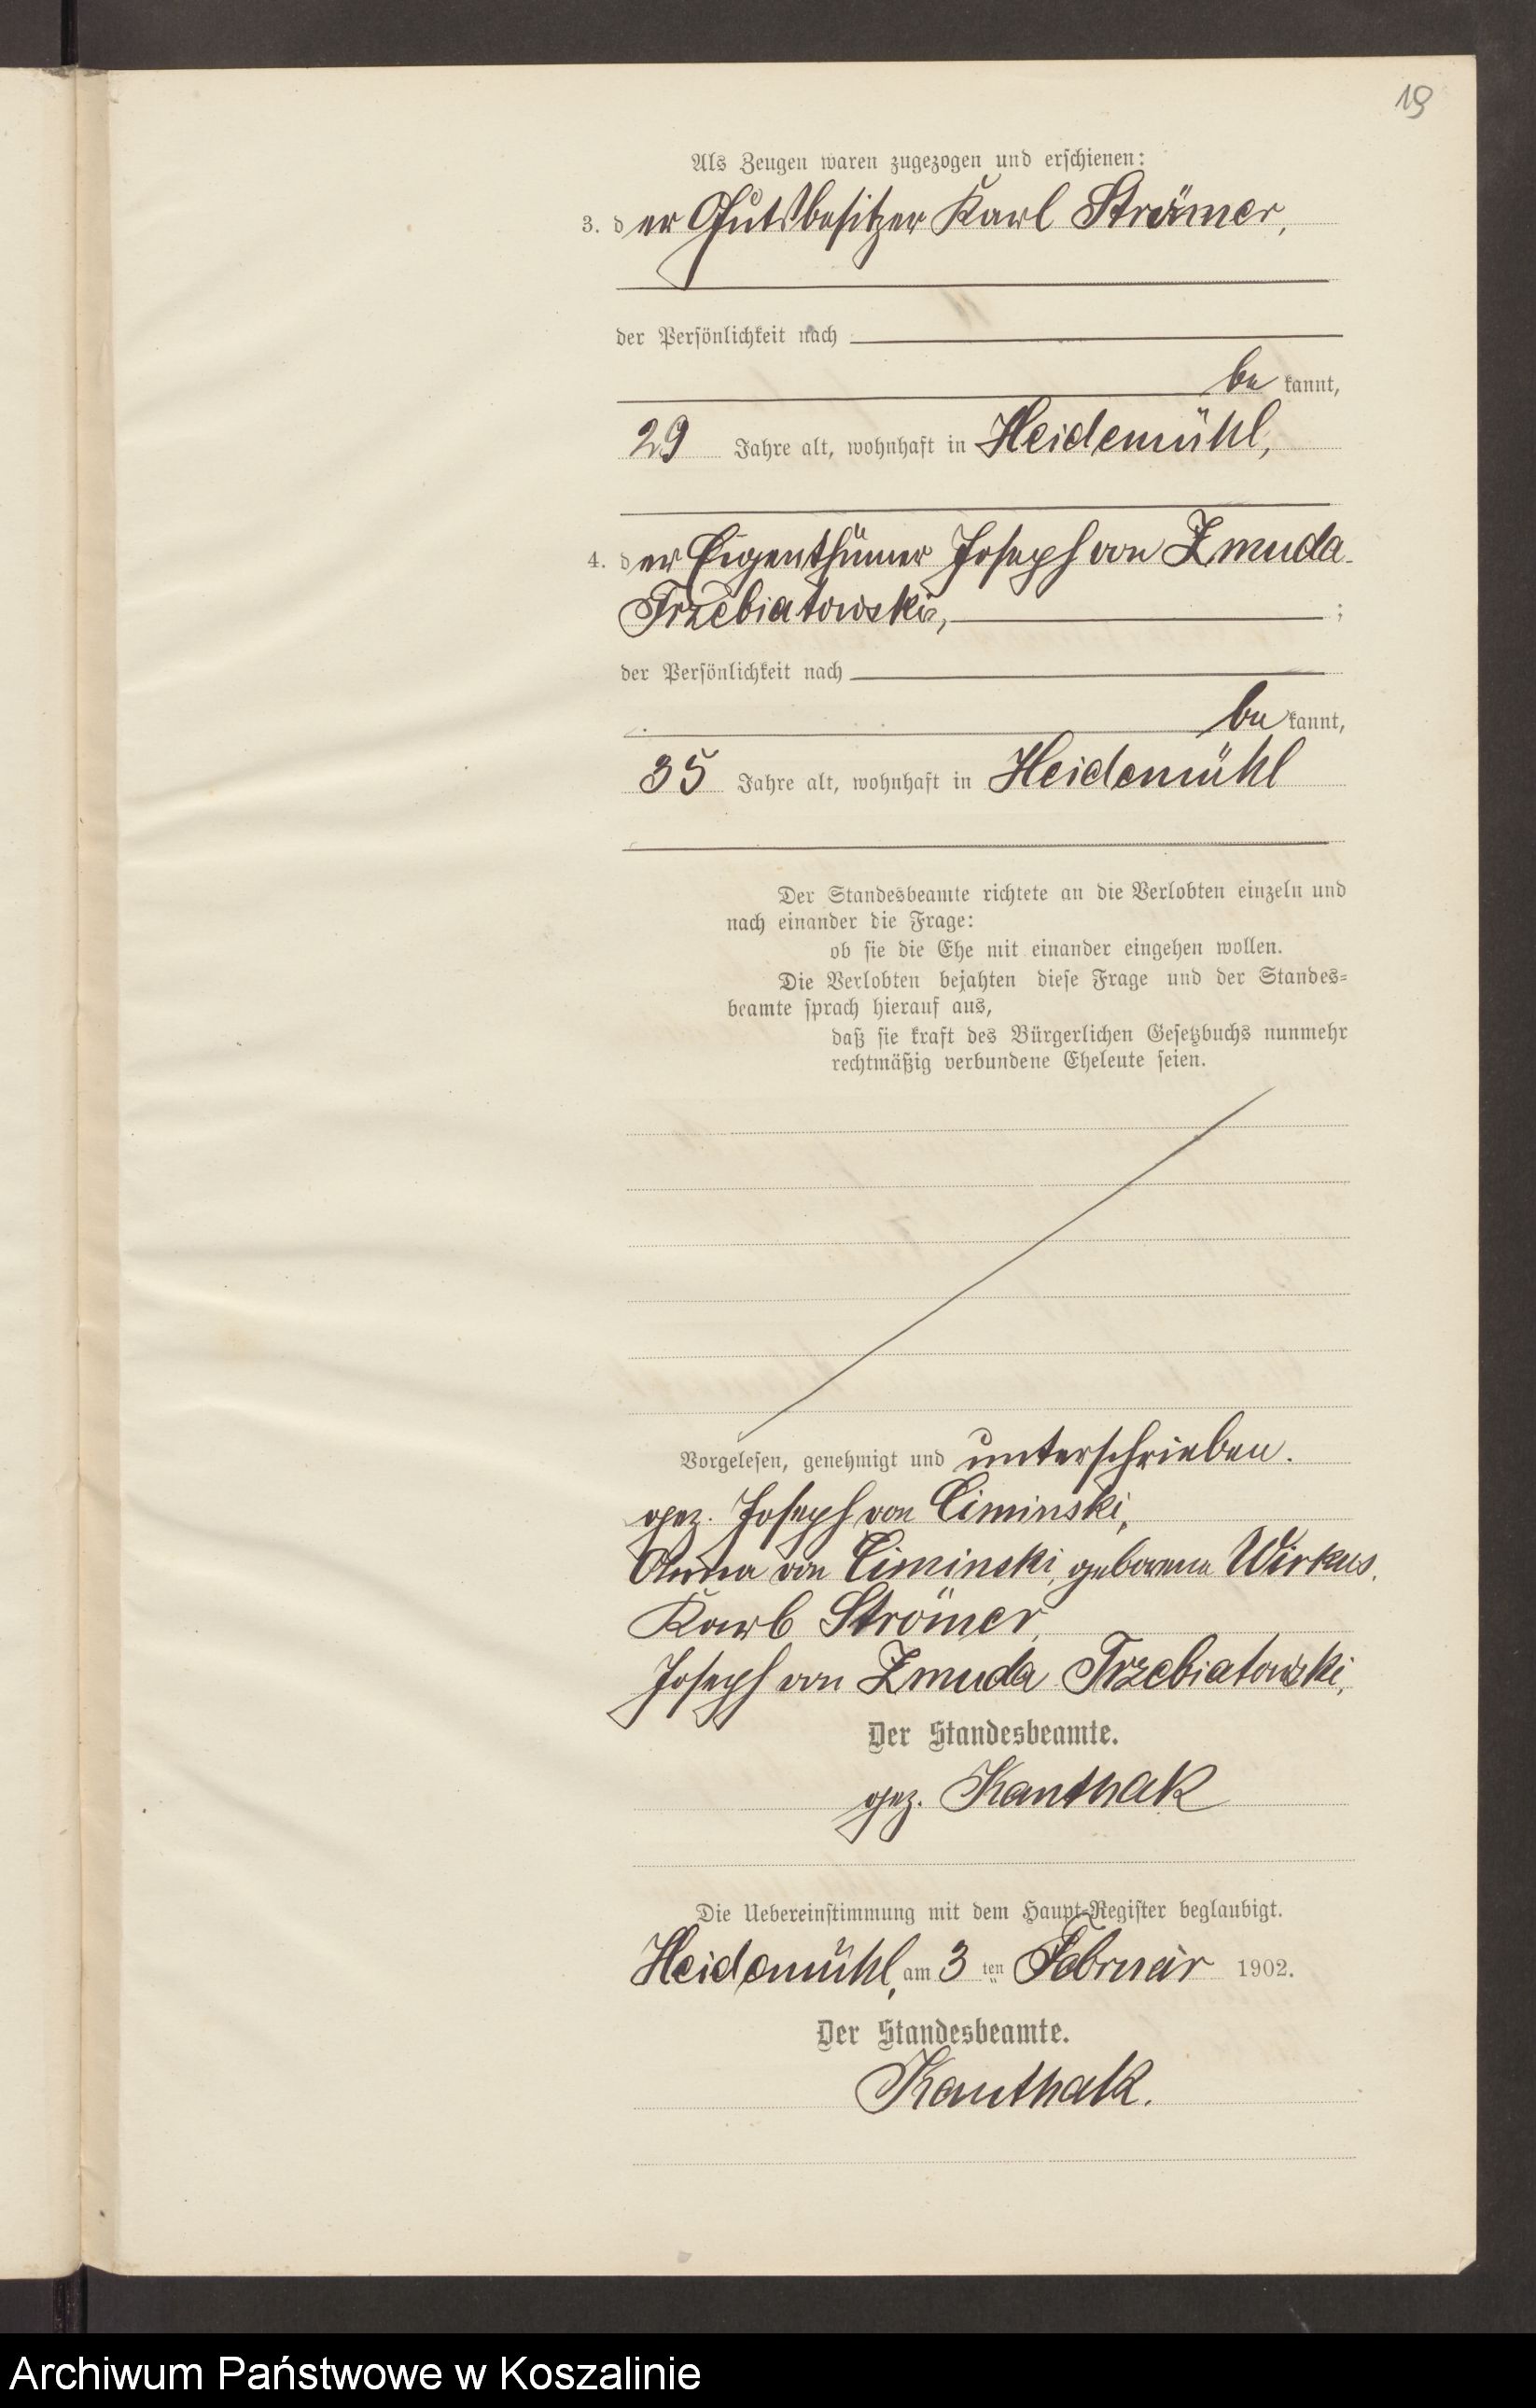 19
Als Zeugen waren zugezogen und erschienen:
3. der Gutsbesitzer Karl Strömer,
der Persönlichkeit nach
be kannt,
29 Jahre alt, wohnhaft in Heidemühl,
4. der Eigenthümer Joseph von Zmuda-
Trzebiatowski, ;
der Persönlichkeit nach
be kannt,
35 Jahre alt, wohnhaft in Heidemühl
Der Standesbeamte richtete an die Verlobten einzeln und
nach einander die Frage:
ob sie die Ehe mit einander eingehen wollen.
Die Verlobten bejahten diese Frage und der Standes-
beamte sprach hierauf aus,
daß sie kraft des Bürgerlichen Gesetzbuchs nunmehr
rechtmäßig verbundene Eheleute seien.
Vorgelesen, genehmigt und unterschrieben.
gez. Joseph von Ciminski,
Anna von Ciminski, geborene Wirkus.
Karl Strömer,
Joseph von Zmuda Trzebiatowski,
Der Standesbeamte.
gez. Kanthak
Die Uebereinstimmung mit dem Haupt-Register beglaubigt.
Heidemühl, am 3 ten Februar 1902.
Der Standesbeamte.
Kanthak.
Archiwum Państwowe w Koszalinie